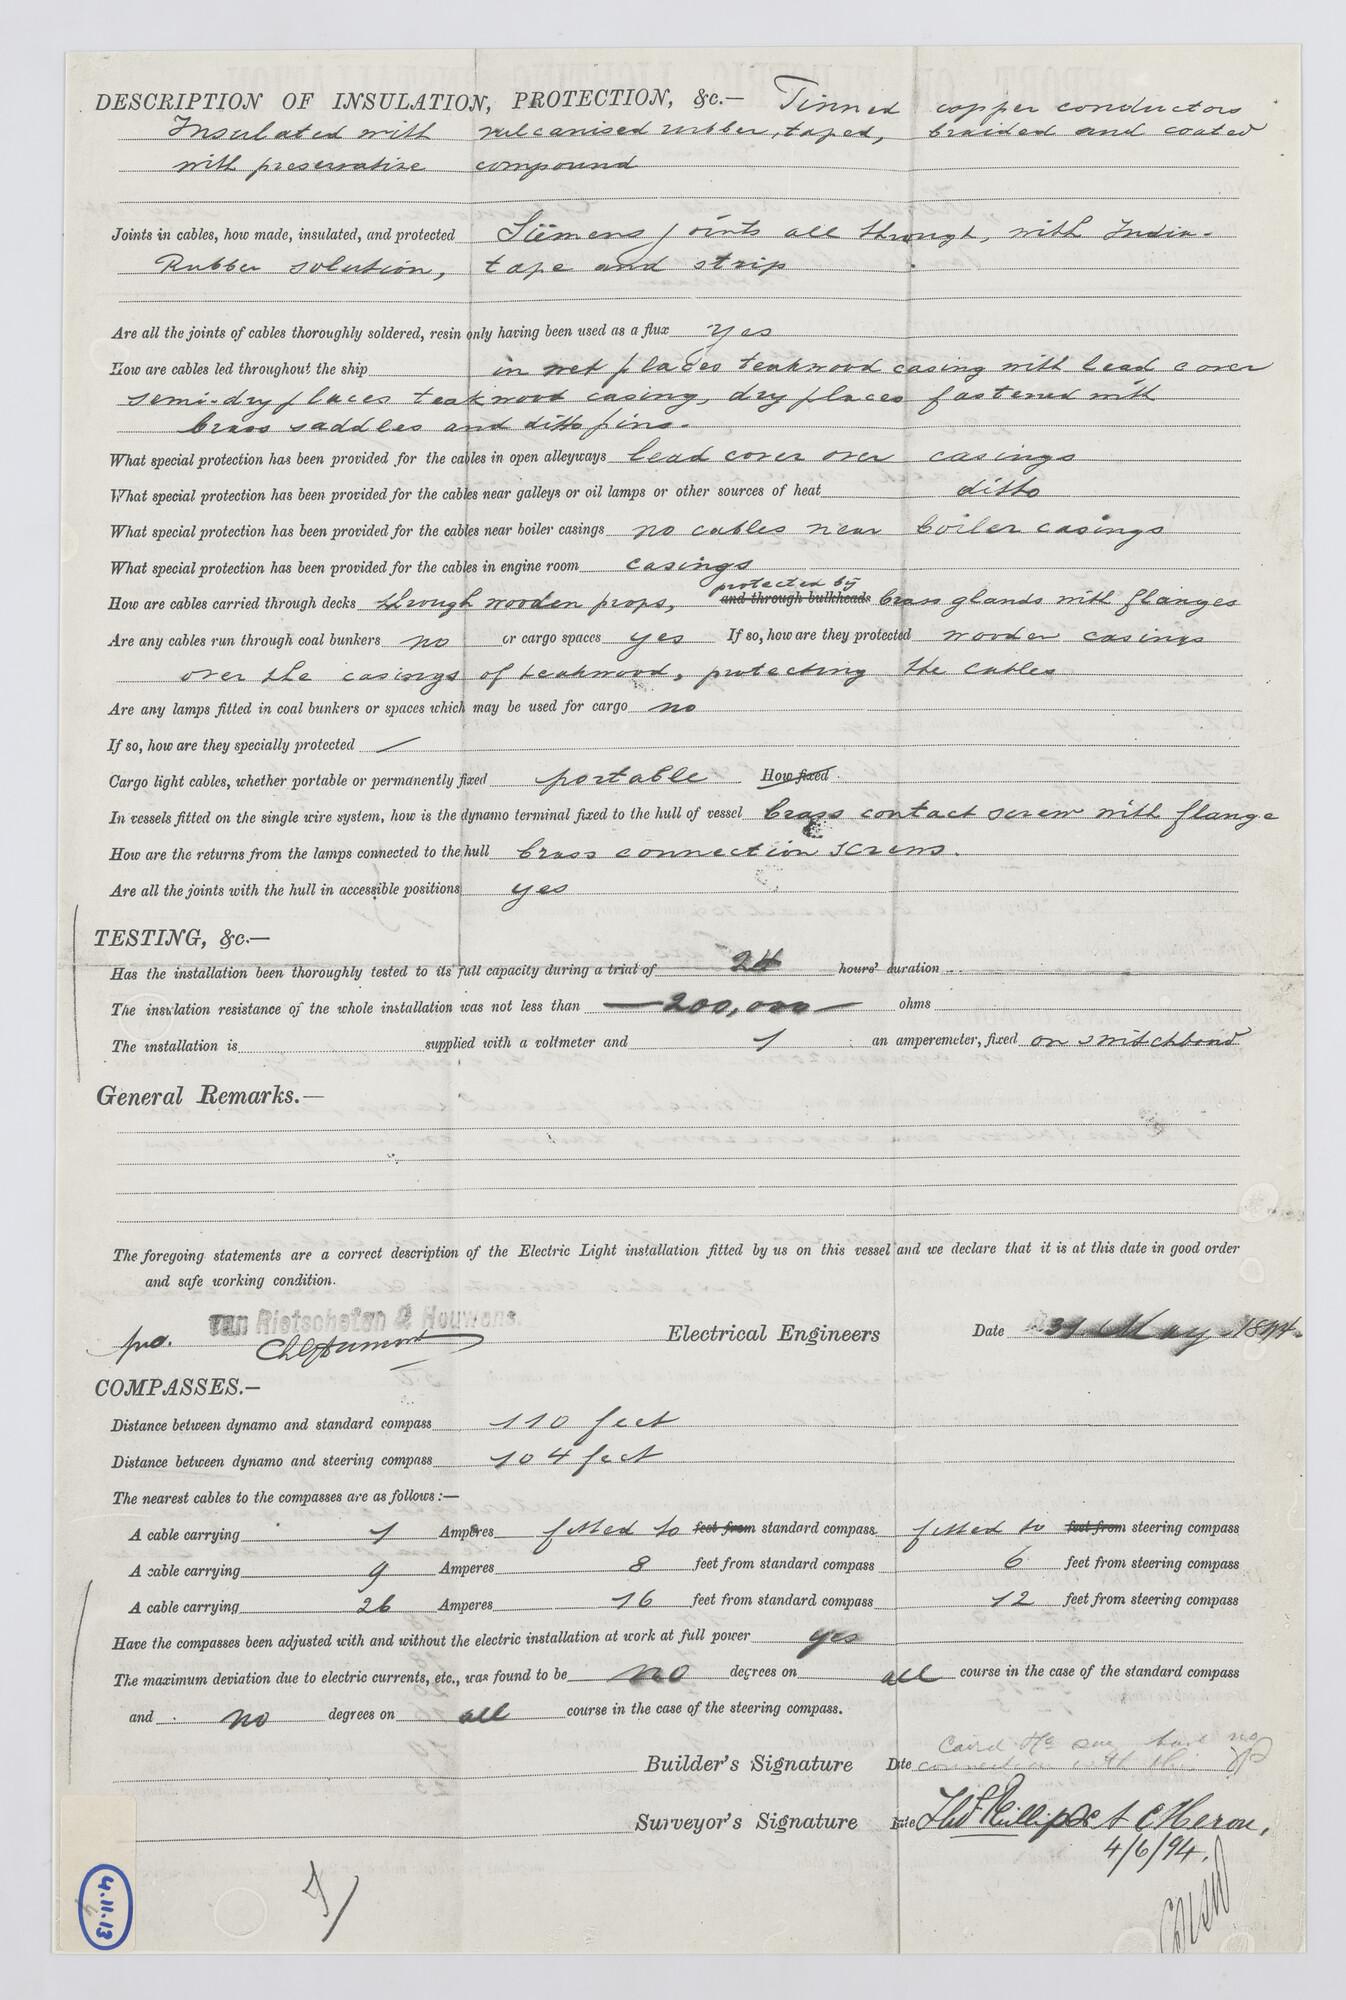 DESCRIPTION OF INSULATION, PROTECTION, &c.— Tinned copper conductors
Insulated with vulcanised rubber, taped, braided and coated
with preservative compound
Joints in cables, how made, insulated, and protected Siemens joints all through, with India-
Rubber solution, tape and strip
Are all the joints of cables thoroughly soldered, resin only having been used as a flux yes
How are cables led throughout the ship in wet places teakwood casing with lead cover
semi-dry places teakwood casing, dry places fastened with
brass saddles and ditto pins.
What special protection has been provided for the cables in open alleyways lead cover over casings
What special protection has been provided for the cables near galleys or oil lamps or other sources of heat ditto
What special protection has been provided for the cables near boiler casings no cables near boiler casings
What special protection has been provided for the cables in engine room casings
protected by
How are cables carried through decks through wooden props, and through bulkheads brass glands with flanges
Are any cables run through coal bunkers no or cargo spaces yes If so, how are they protected wooden casings
over the casings of teakwood, protecting the cables
Are any lamps fitted in coal bunkers or spaces which may be used for cargo no
If so, how are they specially protected —
Cargo light cables, whether portable or permanently fixed portable How fixed
In vessels fitted on the single wire system, how is the dynamo terminal fixed to the hull of vessel brass contact screw with flange
How are the returns from the lamps connected to the hull brass connection screws.
Are all the joints with the hull in accessible positions yes
TESTING, &c.—
Has the installation been thoroughly tested to its full capacity during a trial of 24 hours' duration
The insulation resistance of the whole installation was not less than —200,000— ohms
The installation is supplied with a voltmeter and 1 an amperemeter, fixed on switchboard
General Remarks.—
The foregoing statements are a correct description of the Electric Light installation fitted by us on this vessel and we declare that it is at this date in good order
and safe working condition.
pro. van Rietschoten & Houwens.
Electrical Engineers Date 31 May 1894.
COMPASSES.—
Distance between dynamo and standard compass 110 feet
Distance between dynamo and steering compass 104 feet
The nearest cables to the compasses are as follows:—
A cable carrying 1 Amperes fitted to feet from standard compass fitted to feet from steering compass
A cable carrying 9 Amperes 8 feet from standard compass 6 feet from steering compass
A cable carrying 26 Amperes 16 feet from standard compass 12 feet from steering compass
Have the compasses been adjusted with and without the electric installation at work at full power yes
The maximum deviation due to electric currents, etc., was found to be no degrees on all course in the case of the standard compass
and no degrees on all course in the case of the steering compass.
Caird & Co have no
Builder's Signature Date connection with this
Surveyor's Signature Date Thos Phillips & A C Heron,
4/6/94.
4.11.13